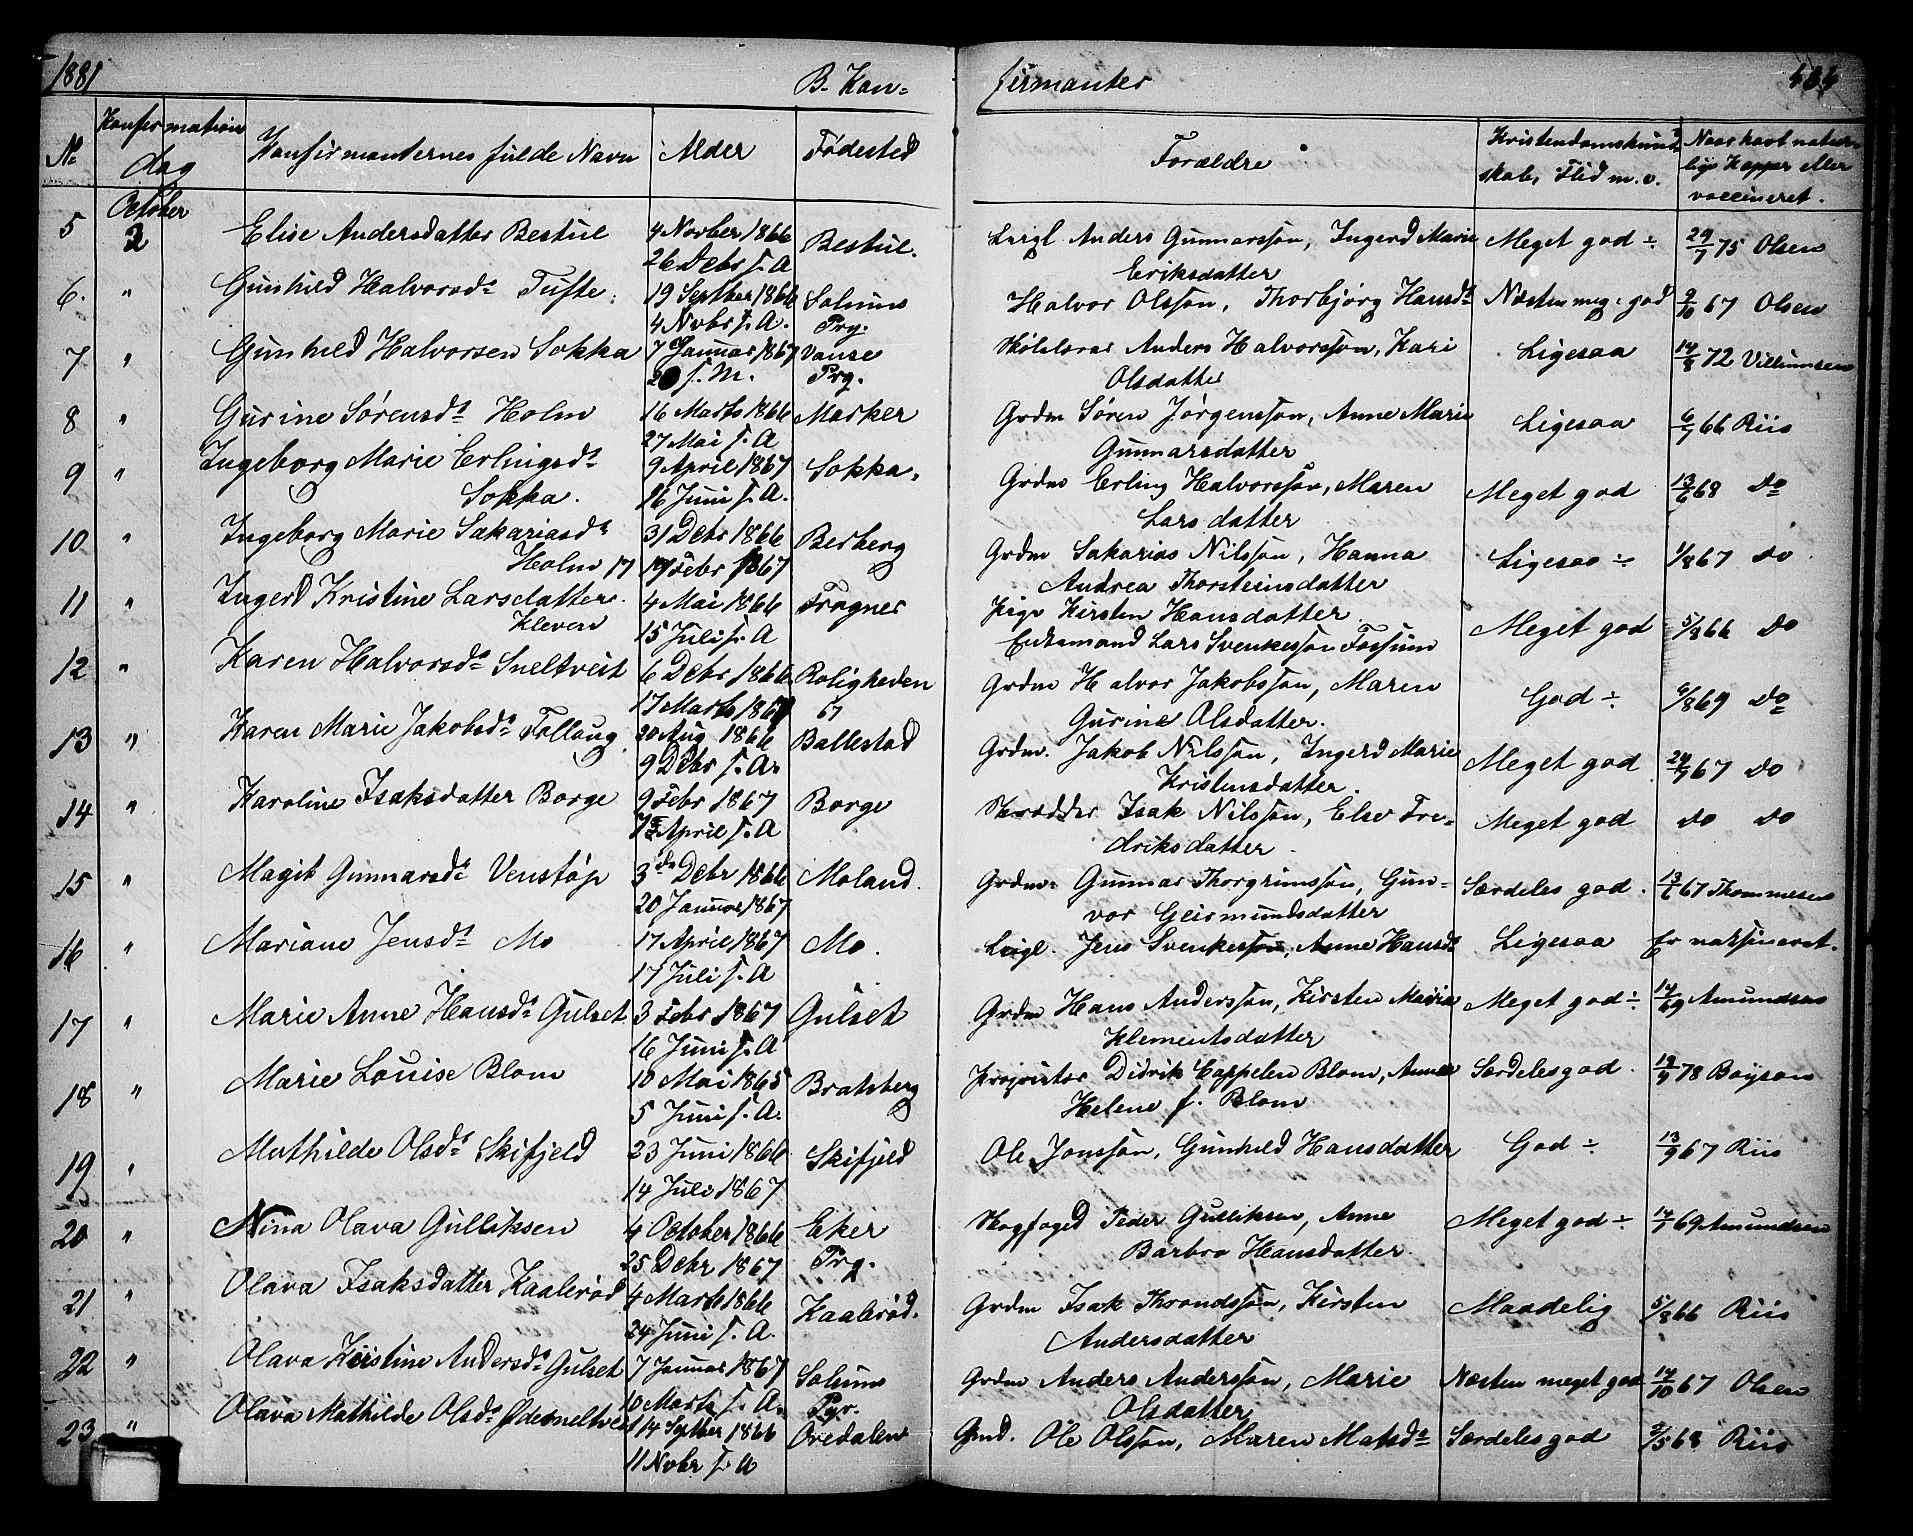 1881 B. Kon= firmanter
No Konfirmation dag Konfirmanternes fulde Navn Alder Fødested Forældre Kristendomskund-
skab, Flid m.v. Naar havt natur-
lige Kopper eller
vaccineret.
October
5 2 Elise Andersdatter Bestul 4 Novber 1866 Bestul. Leigl Anders Gunnarssøn, Ingerd Marie Meget god ÷ 29/7 75 Olsen
26 Debr s. A Eriksdatter
6. " Gunhild Halvorsd. Tufte. 19 Septber 1866 Solums Halvor Olssøn, Thorbjørg Hansd. Næsten meg: god 9/10 67 Olsen
4 Nvbr s. A. Prg.
7 " Gunhild Halvorsen Sokka 7 Januar 1867 Vanse Anders Halvorssøn, Kari Ligesaa 14/8 72 Villumsen
20 s. M. Prg. Olsdatter
8 " Gurine Sørensd. Holm 16 Marts 1866 Marker Grdm Søren Jørgenssøn, Anne Marie Ligesaa 6/7 66 Riis
27 Mai s. A Gunnarsdatter
9 " Ingeborg Marie Erlingsd. 9 April 1867 Sokka. Grdm Erling Halvorssøn, Maren Meget god 13/6 68 Do
Sokka. 16 Juni s. A. Larsdatter
10 " Ingeborg Marie Sakariasd. 31 Debr 1866 Berberg Grdm Sakarias Nilssøn, Hanna Ligesaa ÷ 1/8 67 Do
Holm 17 Febr 1867 Andrea Thorsteinsdatter
11 " Ingerd Kristine Larsdatter. 4 Mai 1866 Frogner Pige Kirsten Hansdatter. Meget god 5/8 66 Do
Kleven 15 Juli s. A Enkemand Lars Svenkessøn Fossum
12 " Karen Halvorsd. Sneltveit 6 Debr 1866 Roligheden Grdm Halvor Jakobssøn, Maren God ÷ 6/8 69 Do
17 Marts 1867 Gurine Olsdatter.
13 " Karen Marie Jakobsd. Follaug 20 Aug 1866 Ballestad Grdm. Jakob Nilssøn, Ingerd Marie Meget god 24/7 67 Do
9 Debr s. A. Kristensdatter.
14 " Karoline Isaksdatter Borge 9 Febr 1867 Borge Skrædder Isak Nilssøn, Else Fre- Meget god do do
April s. A driksdatter.
15 " Magit Gunnarsd. Venstøp 3 Debr 1866 Moland. Grdm. Gunnar Thorgrimssøn, Gun- Særdeles god. 13/6 67 Thommesen
20 Januar 1867 vor Geirmundsdatter
16 " Mariane Jensd. Mo 17 April 1867 Mo. Leigl. Jens Svenkessøn, Anne Hansd. Ligesaa Er vaksineret.
17 Juli s. A
17 " Marie Anne Hansd. Gulset 3 Febr 1867 Gulset Grdm Hans Anderssøn, Kirsten Maria Meget god ÷ 14/7 69 Amundsen
16 Juni s. A Klementsdatter
18 " Marie Louise Blom 10 Mai 1865 Bratsberg Proprietær Didrik Cappelen Blom, Anne Særdeles god. 19/9 78 Boyson
5 Juni s. A. Helene f. Blom
19 " Mathilde Olsd. Skifjeld 23 Juni 1866 Skifjeld Ole Jonssøn, Gunhild Hansdatter God ÷ 13/9 67 Riis
14 Juli 1867
20 " Nina Olava Gulliksen 4 October 1866 Eker Skogfoged Peder Gulliksen, Anne Meget god ÷ 14/7 69 Amundsen
25 Debr 1867 Prg. Barbro Hansdatter.
21 " Olava Isaksdatter Kaalerød 4 Marts 1866 Kaalerød. Grdm Isak Throndssøn, Kirsten Maadelig 5/8 66 Riis
24 Juni s. A. Andersdatter
22 " Olava Kirstine Andersd. Gulset 7 Januar 1867 Solums Grdm Anders Anderssøn, Marie Næsten meget god 14/10 67 Olsen
10 Marts s. A. Pgr. Olsdatter
23 " Olava Mathilde Olsd. Ødesneltveit 14 Septber 1866 Overdalen Gmd. Ole Olssøn, Maren Matsd. Særdeles god 3/5 68 Riis
11 Novbr s. A